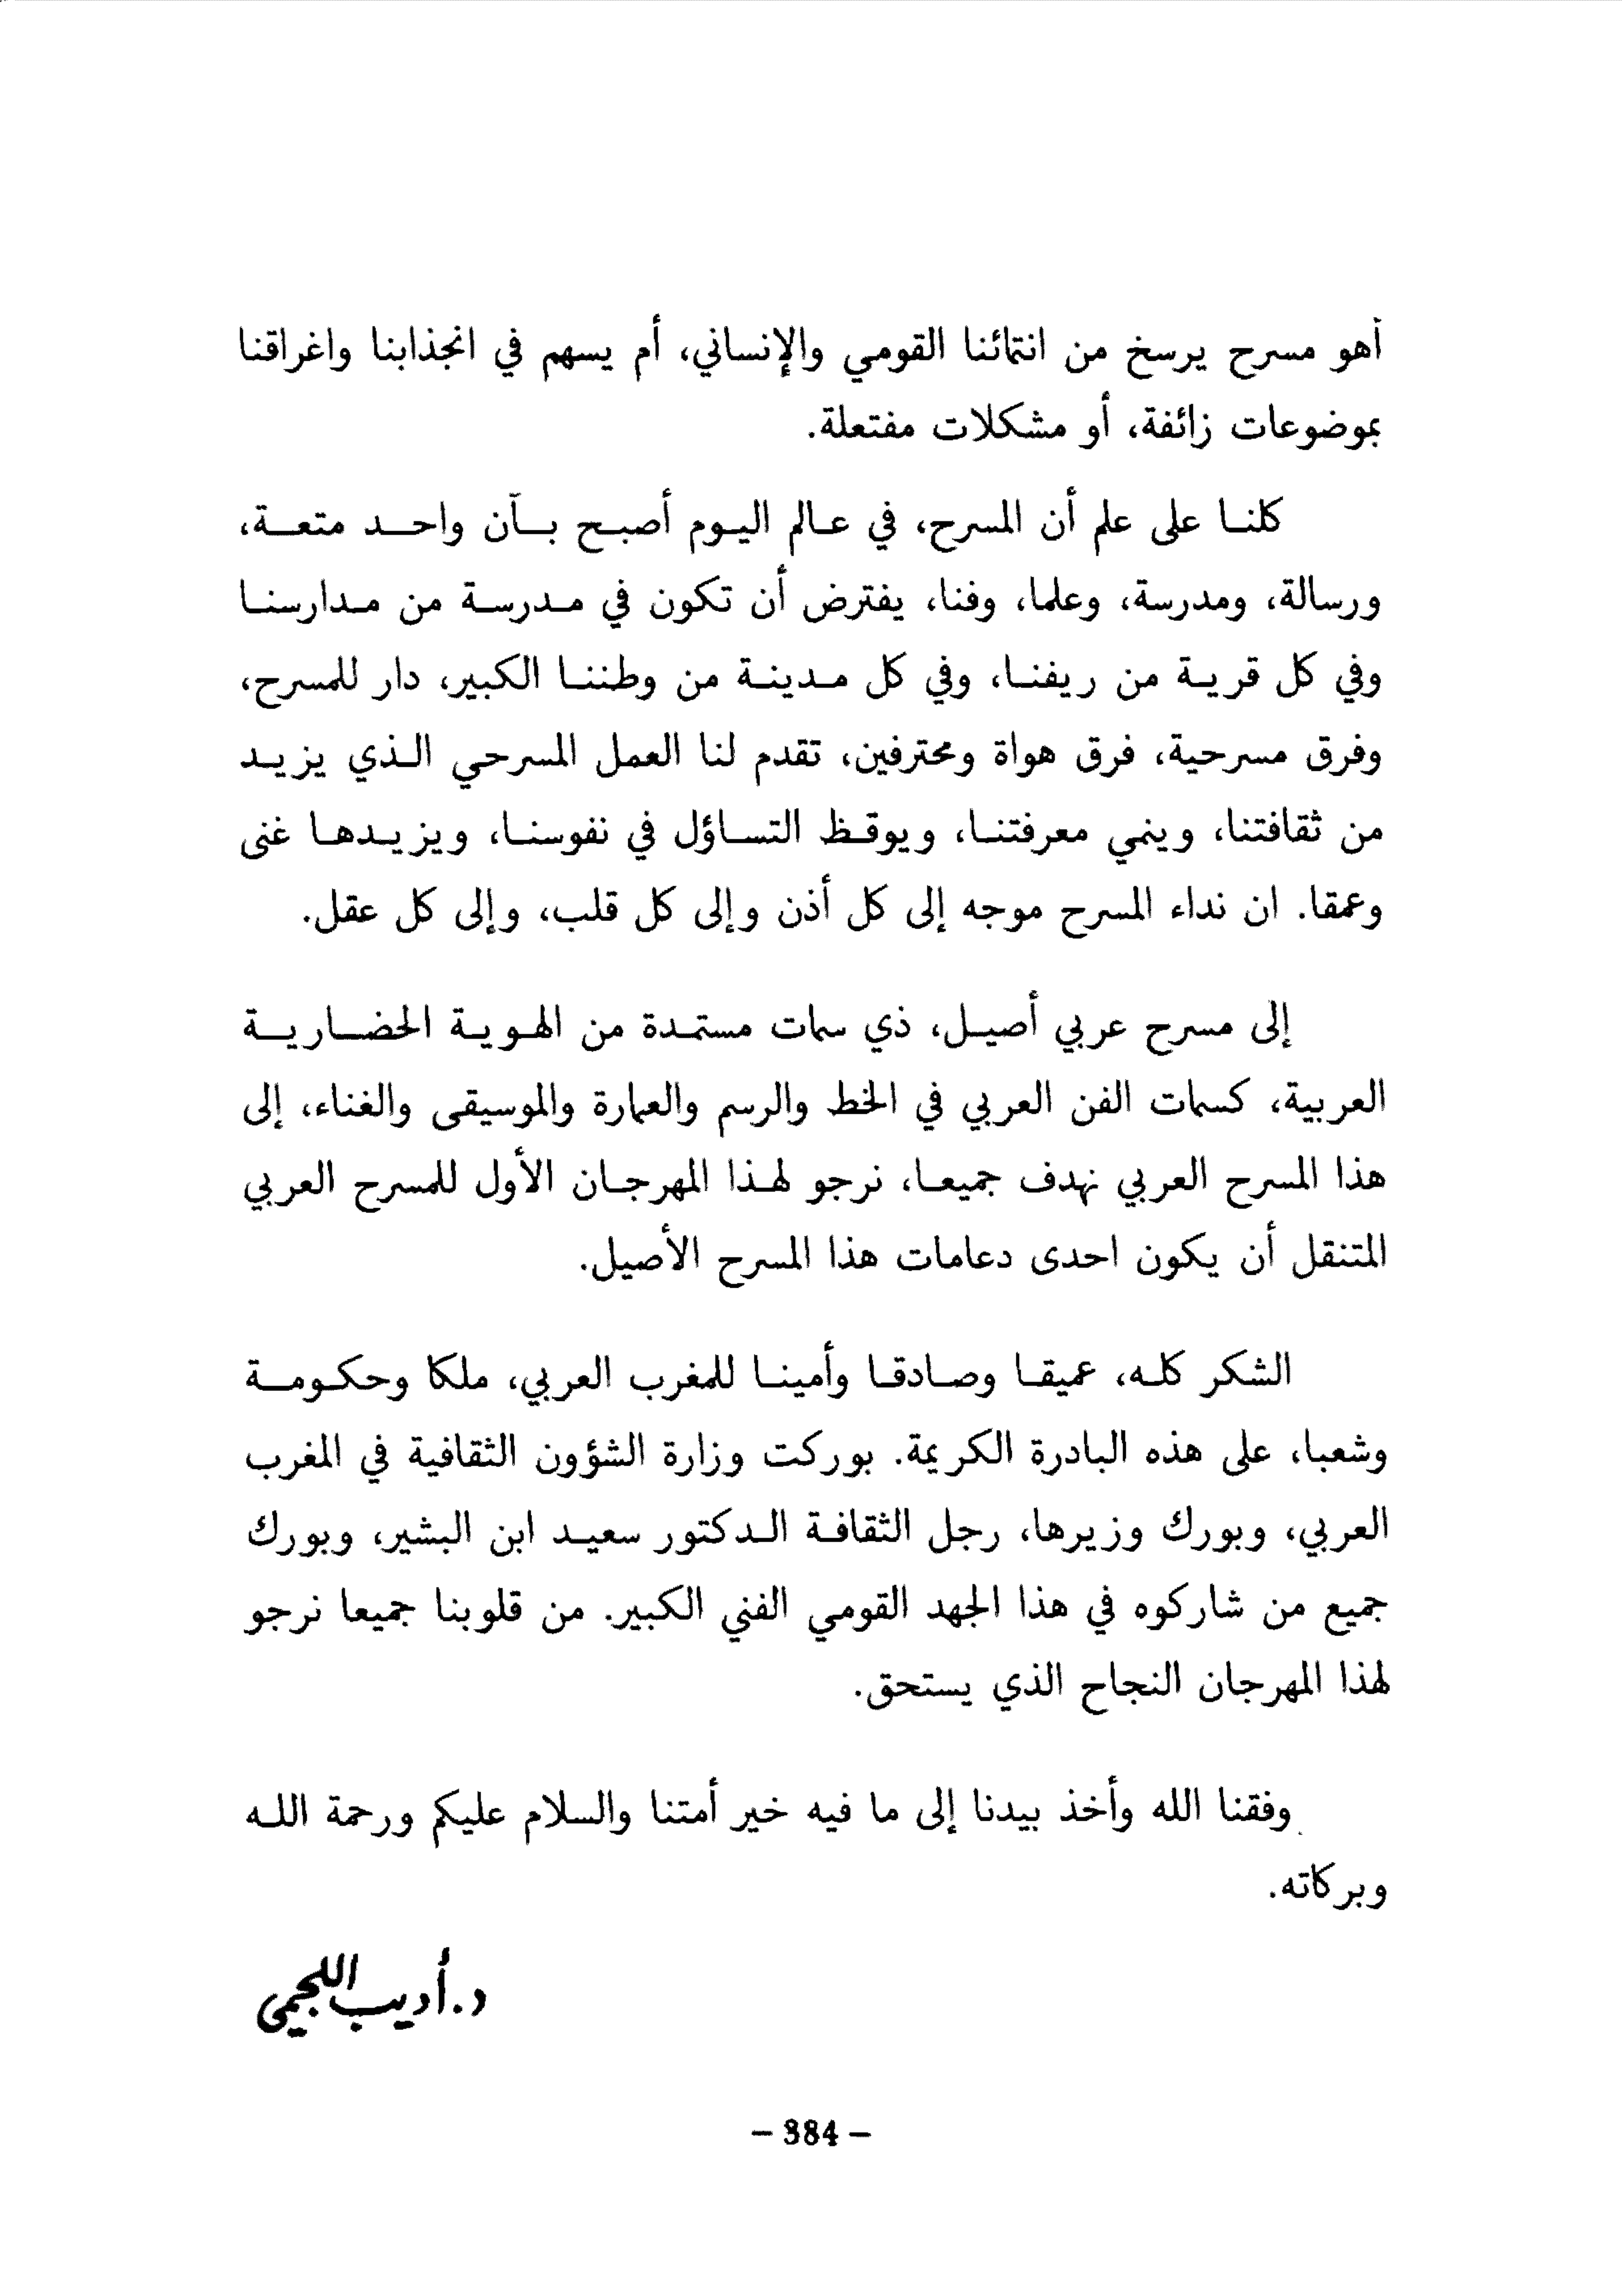 أهو مسرح يرسخ من انتمائنا القومي والإنساني، أم يسهم في انجذابنا واغراقنا
بموضوعات زائفة، أو مشكلات مفتعلة.
كلنا على علم أن المسرح، في عالم اليوم أصبح بآن واحد متعة،
ورسالة، ومدرسة، وعلما، وفنا، يفترض أن تكون في مدرسة من مدارسنا
وفي كل قرية من ريفنا، وفي كل مدينة من وطننا الكبير، دار للمسرح،
وفرق مسرحية، فرق هواة ومحترفين، تقدم لنا العمل المسرحي الذي يزيد
من ثقافتنا، وينمي معرفتنا، ويوقظ التساؤل في نفوسنا، ويزيدها غنى
وعمقا. ان نداء المسرح موجه إلى كل أذن وإلى كل قلب، وإلى كل عقل.
إلى مسرح عربي أصيل، ذي سمات مستمدة من الهوية الحضارية
العربية، كسمات الفن العربي في الخط والرسم والعمارة والموسيقى والغناء، إلى
هذا المسرح العربي نهدف جميعا، نرجو لهذا المهرجان الأول للمسرح العربي
المتنقل أن يكون احدى دعامات هذا المسرح الأصيل.
الشكر كله، عميقا وصادقا وأمينا للمغرب العربي، ملكا وحكومة
وشعبا، على هذه البادرة الكريمة. بوركت وزارة الشؤون الثقافية في المغرب
العربي، وبورك وزيرها، رجل الثقافة الدكتور سعيد ابن البشير، وبورك
جميع من شاركوه في هذا الجهد القومي الفني الكبير. من قلوبنا جميعا نرجو
لهذا المهرجان النجاح الذي يستحق.
وفقنا الله وأخذ بيدنا إلى ما فيه خير أمتنا والسلام عليكم ورحمة الله
وبركاته.
د. أديب اللجمي
- 384 -